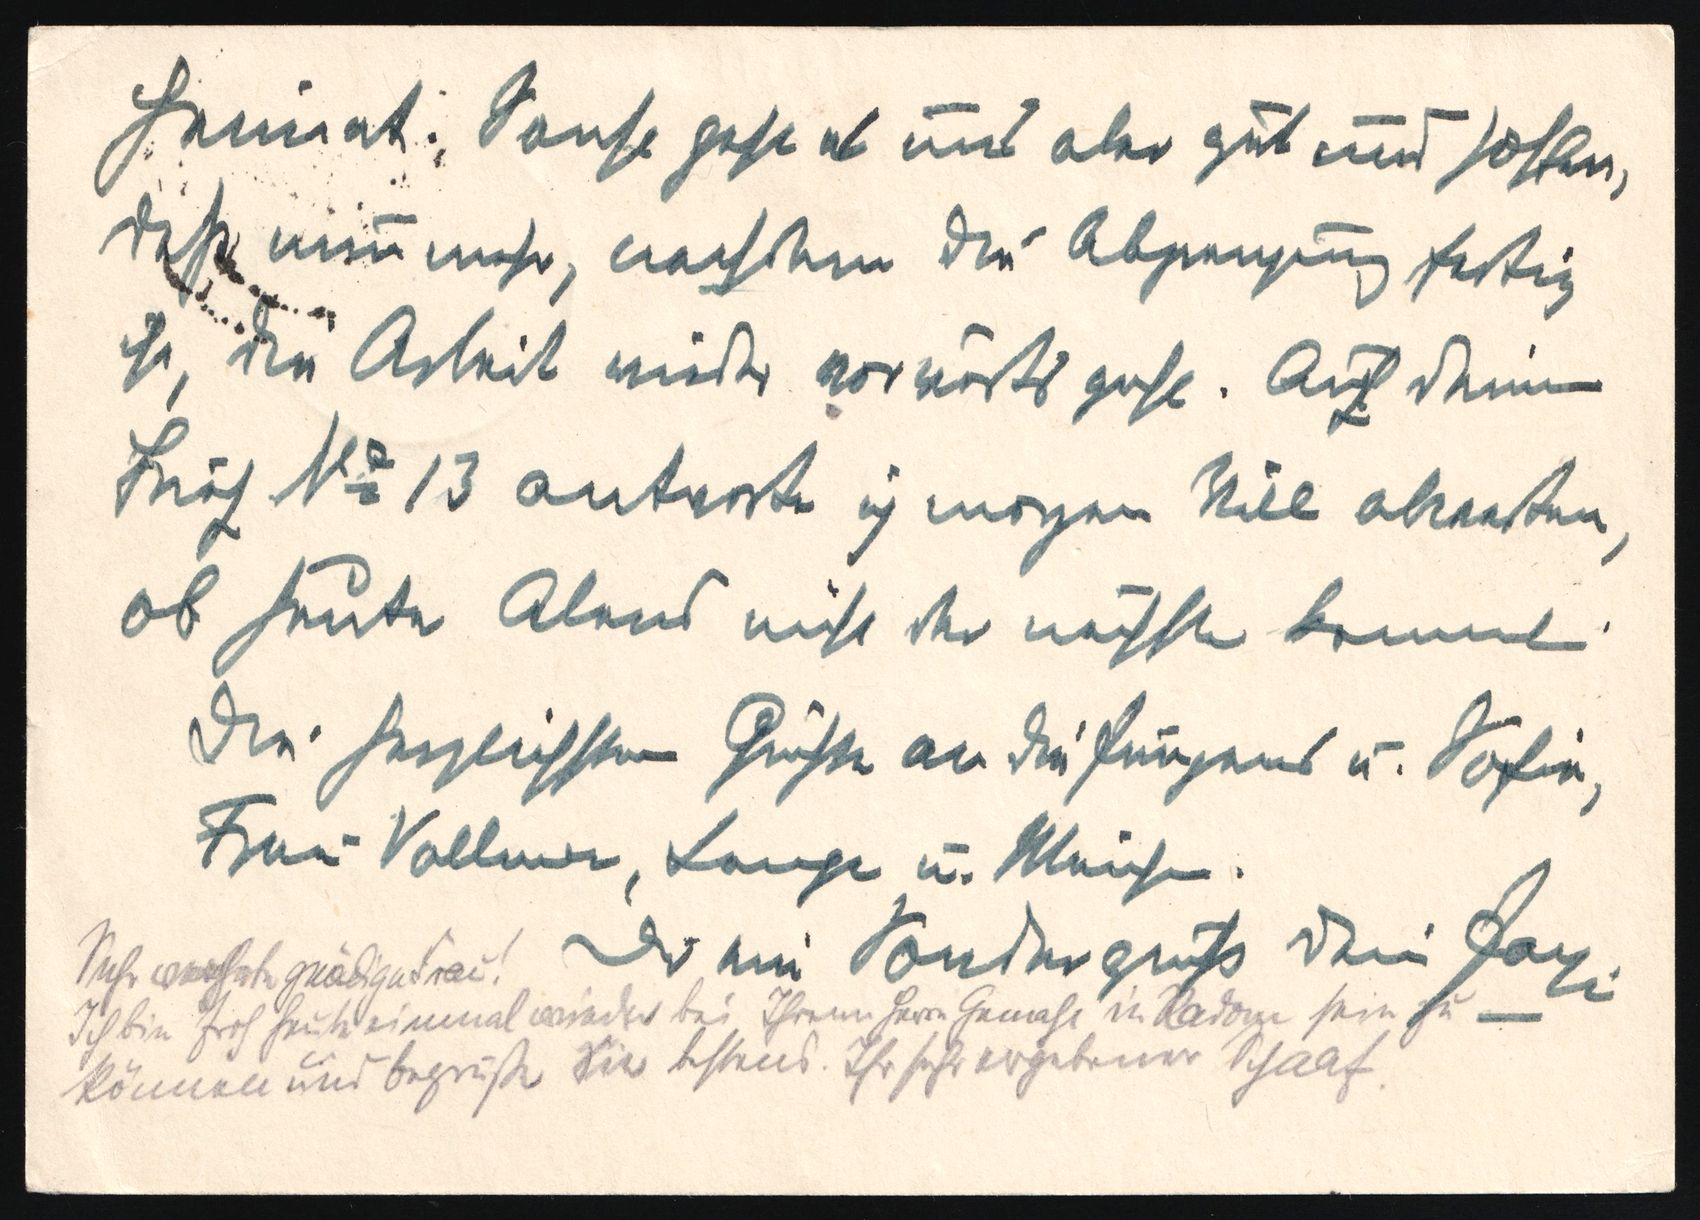 Heimat. Sonst geht es uns aber gut und hoffen,
daß nunmehr, nachdem die Abgrenzung fertig
ist, die Arbeit wieder vorwärts geht. Auf deinen
Brief No 13 antworte ich morgen will abwarten,
ob heute Abend nicht der nächste kommt.
Die herzlichsten Grüße an die Jungens u. Sofie,
Frau Vollmer, Lange u.
Dir ein Sondergruß dein
Sehr verehrte gnädige Frau!
Ich bin froh heute einmal wieder bei Ihrem Herrn Gemahl in Radom sein zu
können und begrüße Sie bestens. Ihr sehr ergebener Schaaf.